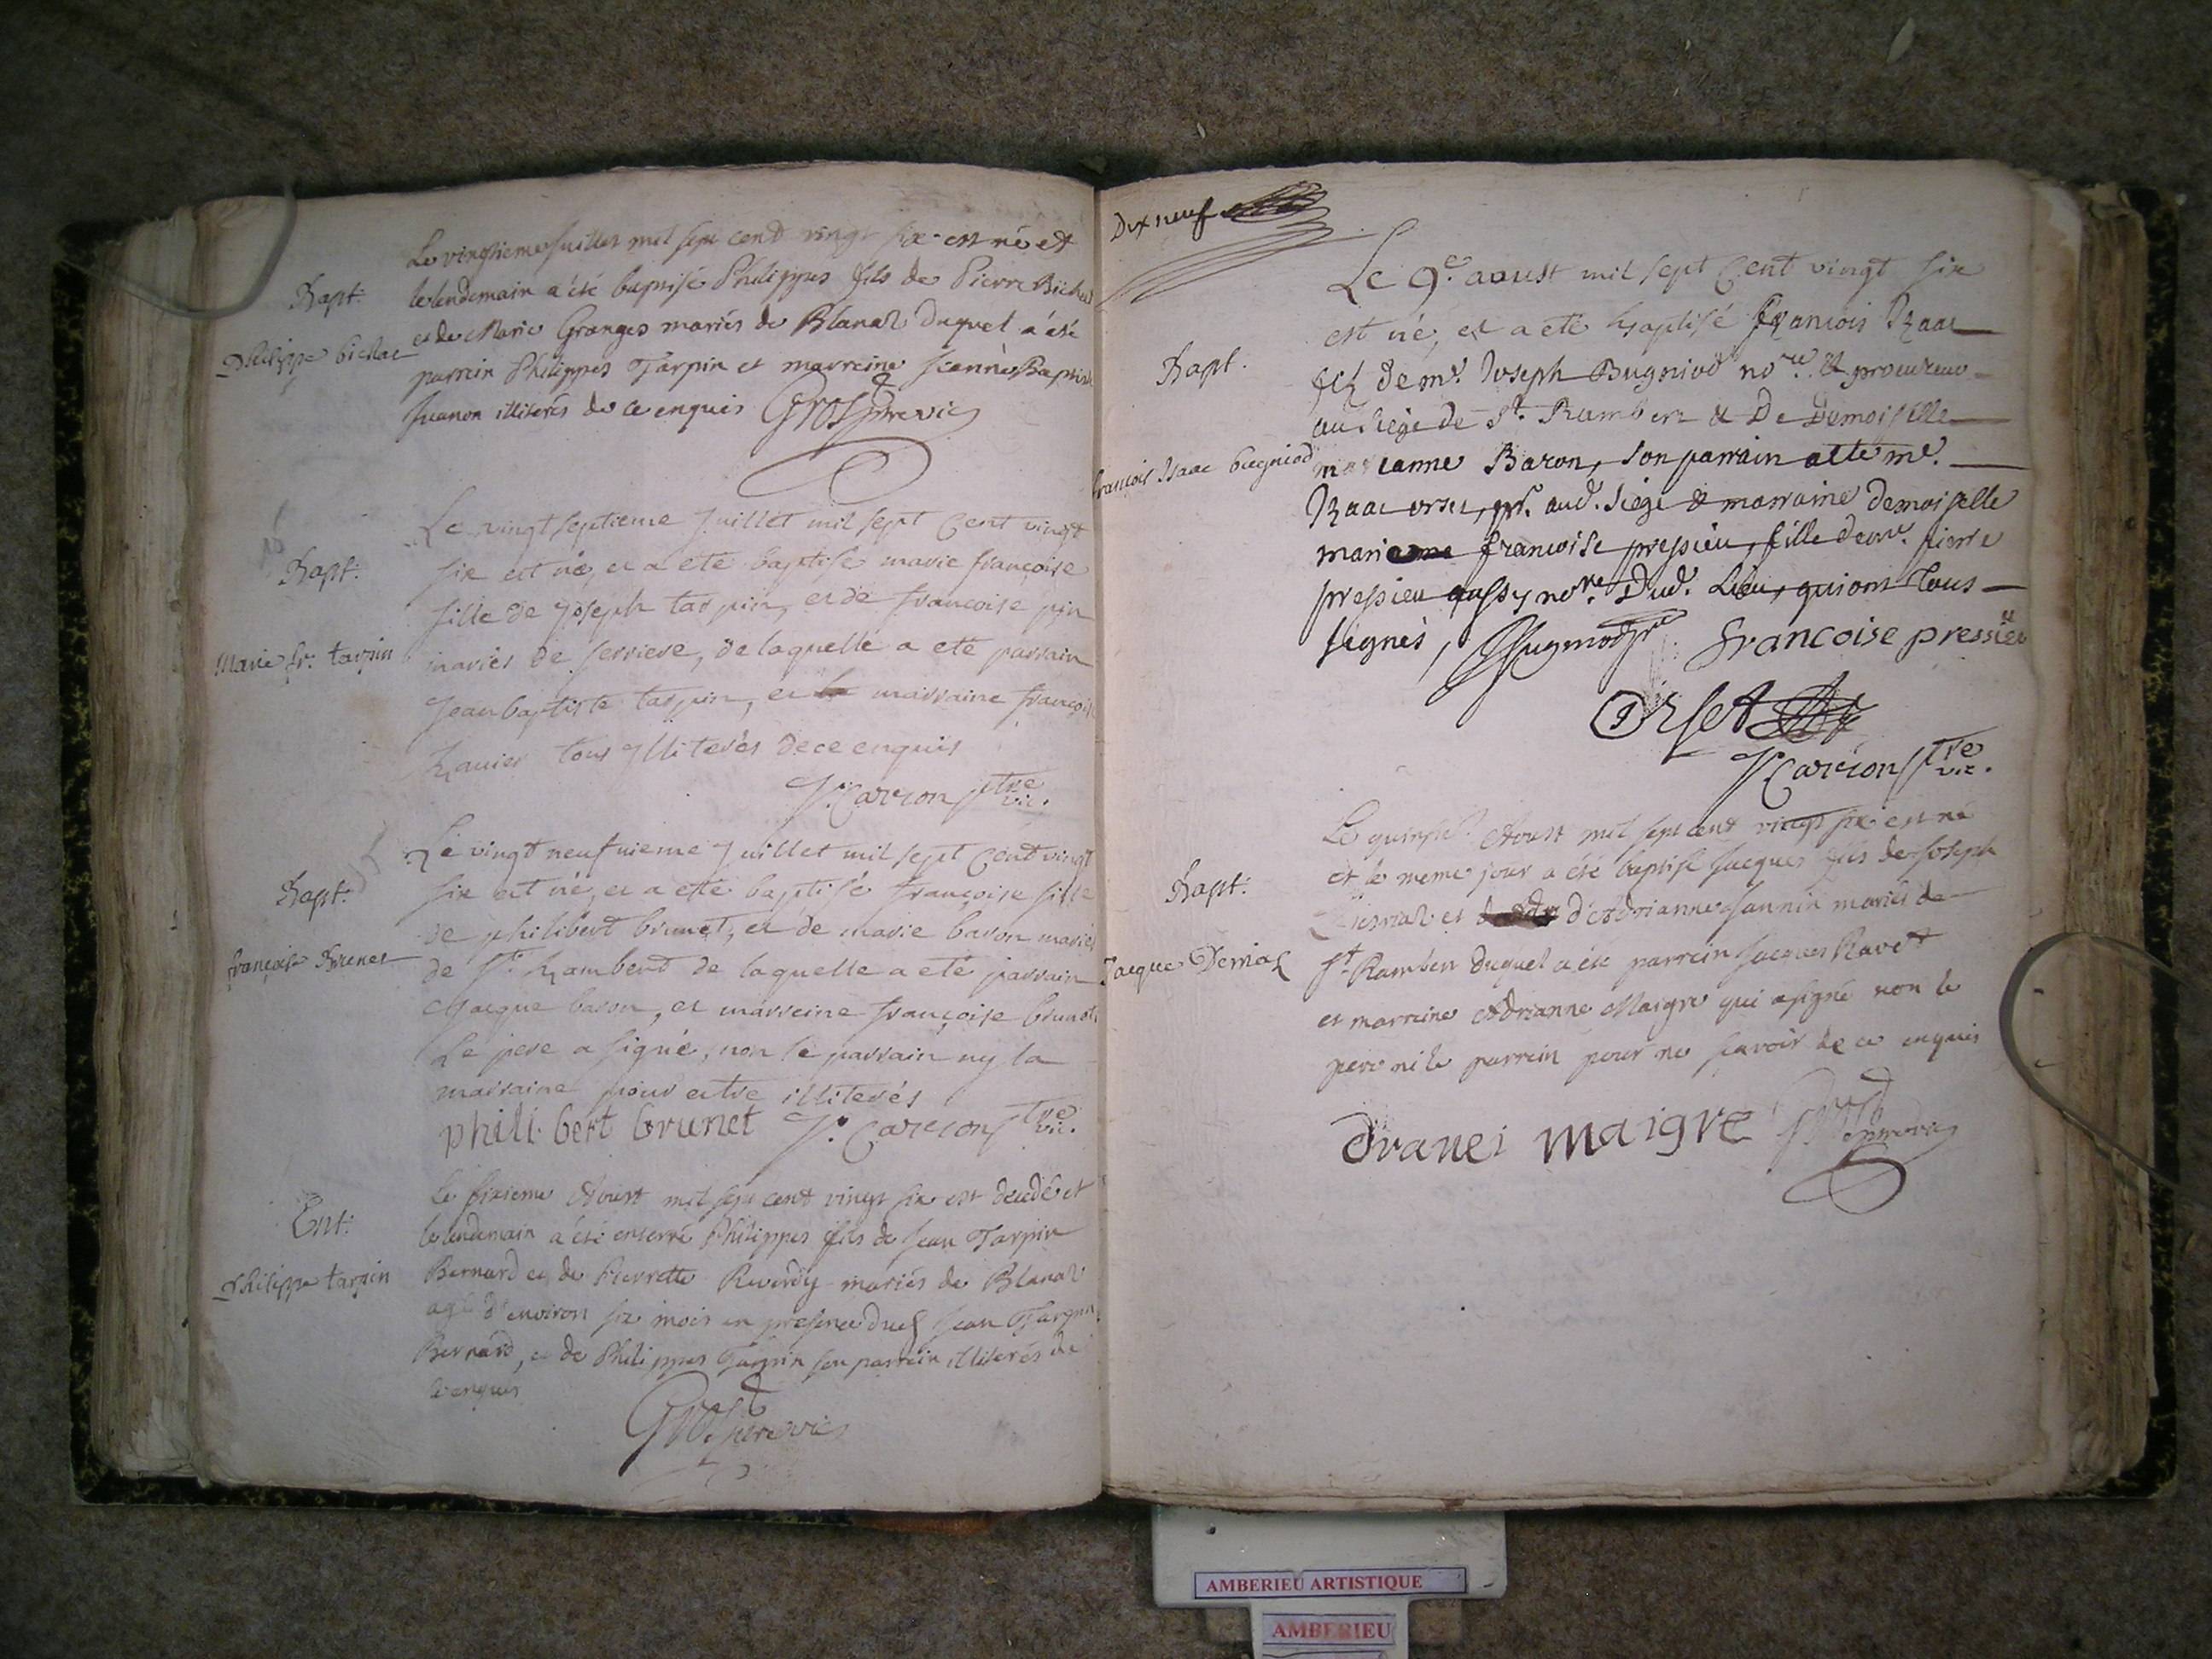 Le vingtieme Juillet mil sept cend vingt six est né et
Bapt:
le lendemain a été baptisé Philippes fils de Pierre
Philippe
et de Marie Granges mariés de Blanaz duquel a été
parrein Philippes Tarpin et marreine Jeanne Baptiste
Juanon illiterés de ce enquis Grospierre vic
Le vingt septieme Juillet mil sept Cent vingt
Bapt:
six est né, et a eté baptisé marie françoise
fille de Joseph tarpin, et de francoise pin
Marie fr. tarpin
mariés de serriere, de laquelle a eté parrain
Jean baptiste tarpin, et marraine françoise
tous Illiterés de ce enquis
J. Carrion ptre vic.
Le vingt neufvieme Juillet mil sept Cent vingt
Bapt:
six est né, et a eté baptisé françoise fille
de philibert brunet, et de marie baron mariés
françoise Brunet
de St. Rambert de laquelle a eté parrain
Jacque baron, et marreine françoise brunet
Le pere a signé, non le parrain ny la
marraine pour estre illiterés
phili bert brunet J. Carrion ptre vic.
Le sixieme Aoust mil sept cent vingt six est decedé et
Ent:
le lendemain a été enterré Philippes fils de Jean Tarpin
Philippe tarpin
Bernard et de Pierrette Reverdy mariés de Blanaz
agé d'environ six mois en presence dud Jean Tarpin
Bernard, et de Philippes Tarpin son parrein illiterés de
ce enquis
Grospierre vic
Dix neuf
Le 9e. aoust mil sept Cent vingt six
est né, et a eté baptisé François Izaac
Bapt.
filz de me. Joseph Bugniod nore. & procureur
au siege de St. Rambert & De Demoiselle
francois Isaac bugniod
marianne Baron, son parrain a eté me.
Izaac orset, pr. aud. siege & marraine demoiselle
marie francoise pressieu, fille de me. pierre
pressieu aussy nore. Dud. Lieu, qui ont Tous
signés, JBugniod pr francoise pressieu
Orset
J. Carrion ptre vic.
Le quinze Aoust mil sept cent vingt six est né
et le meme jour a été baptisé Jacques fils de Joseph
Bapt:
Demiaz et d'Adrianne Jannin mariés de
Jacque Demiaz
St Rambert duquel a été parrein Jacques Ravet
et marreine Adrianne Maigre qui a signé non le
pere ni le parrein pour ne scavoir de ce enquis
dranei maigre Grospierre vic